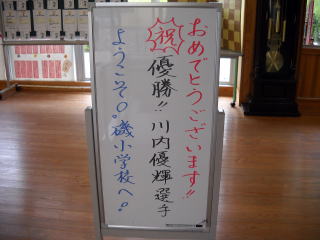 おめでとうございます!!
祝 優勝!! 川内優輝選手
ようこそ○磯小学校へ!